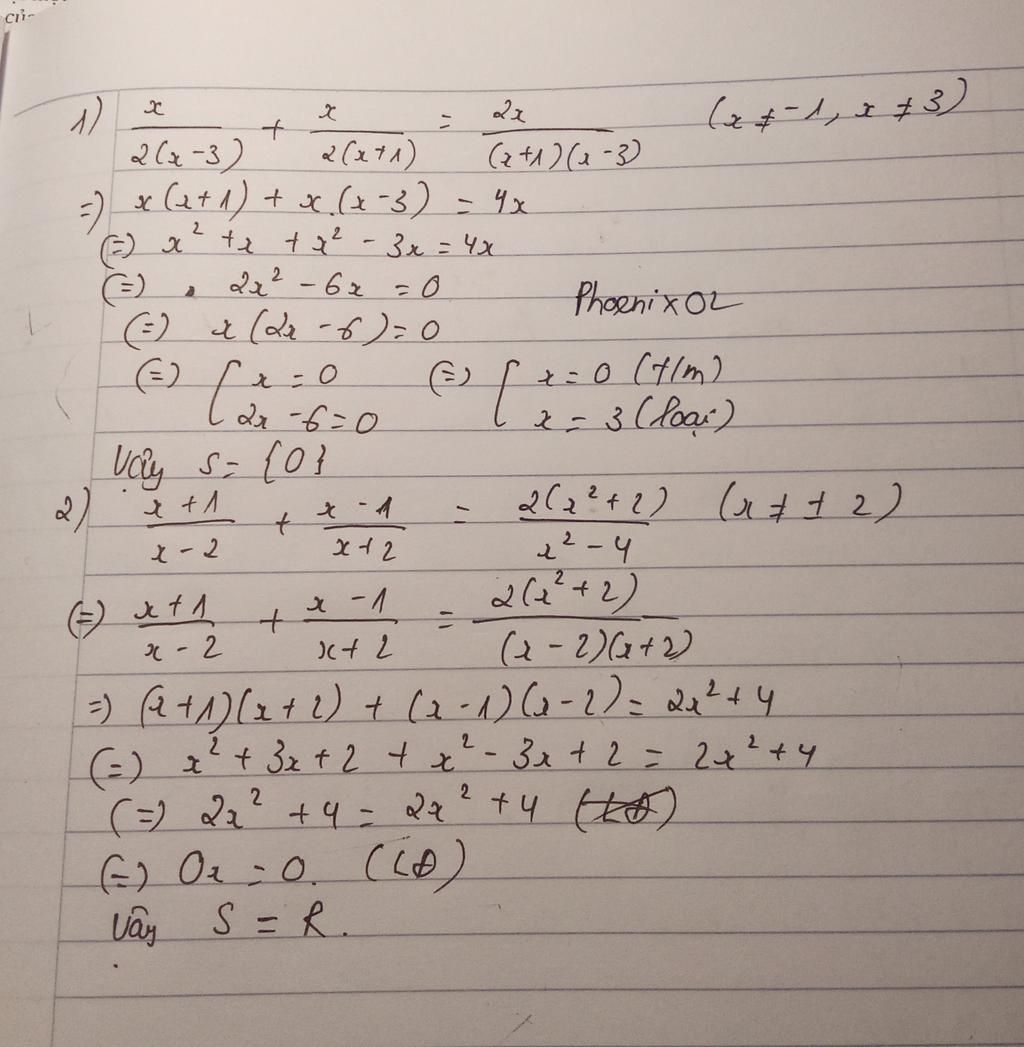 của
1) x/(2(x-3)) + x/(2(x+1)) = 2x/((x+1)(x-3)) (x ≠ -1, x ≠ 3)
=) x(x+1) + x.(x-3) = 4x
(=) x² + x + x² - 3x = 4x
(=) 2x² - 6x = 0
PhoenixOL
(=) x(2x - 6) = 0
(=) [ x = 0 (=) [ x = 0 (t/m)
2x - 6 = 0 x = 3 (loại)
Vậy S = {0}
2) (x+1)/(x-2) + (x-1)/(x+2) = 2(x²+2)/(x²-4) (x ≠ ± 2)
(=) (x+1)/(x-2) + (x-1)/(x+2) = 2(x²+2)/((x-2)(x+2))
=) (x+1)(x+2) + (x-1)(x-2) = 2x² + 4
(=) x² + 3x + 2 + x² - 3x + 2 = 2x² + 4
(=) 2x² + 4 = 2x² + 4
(=) 0x = 0. (LĐ)
Vậy S = R.